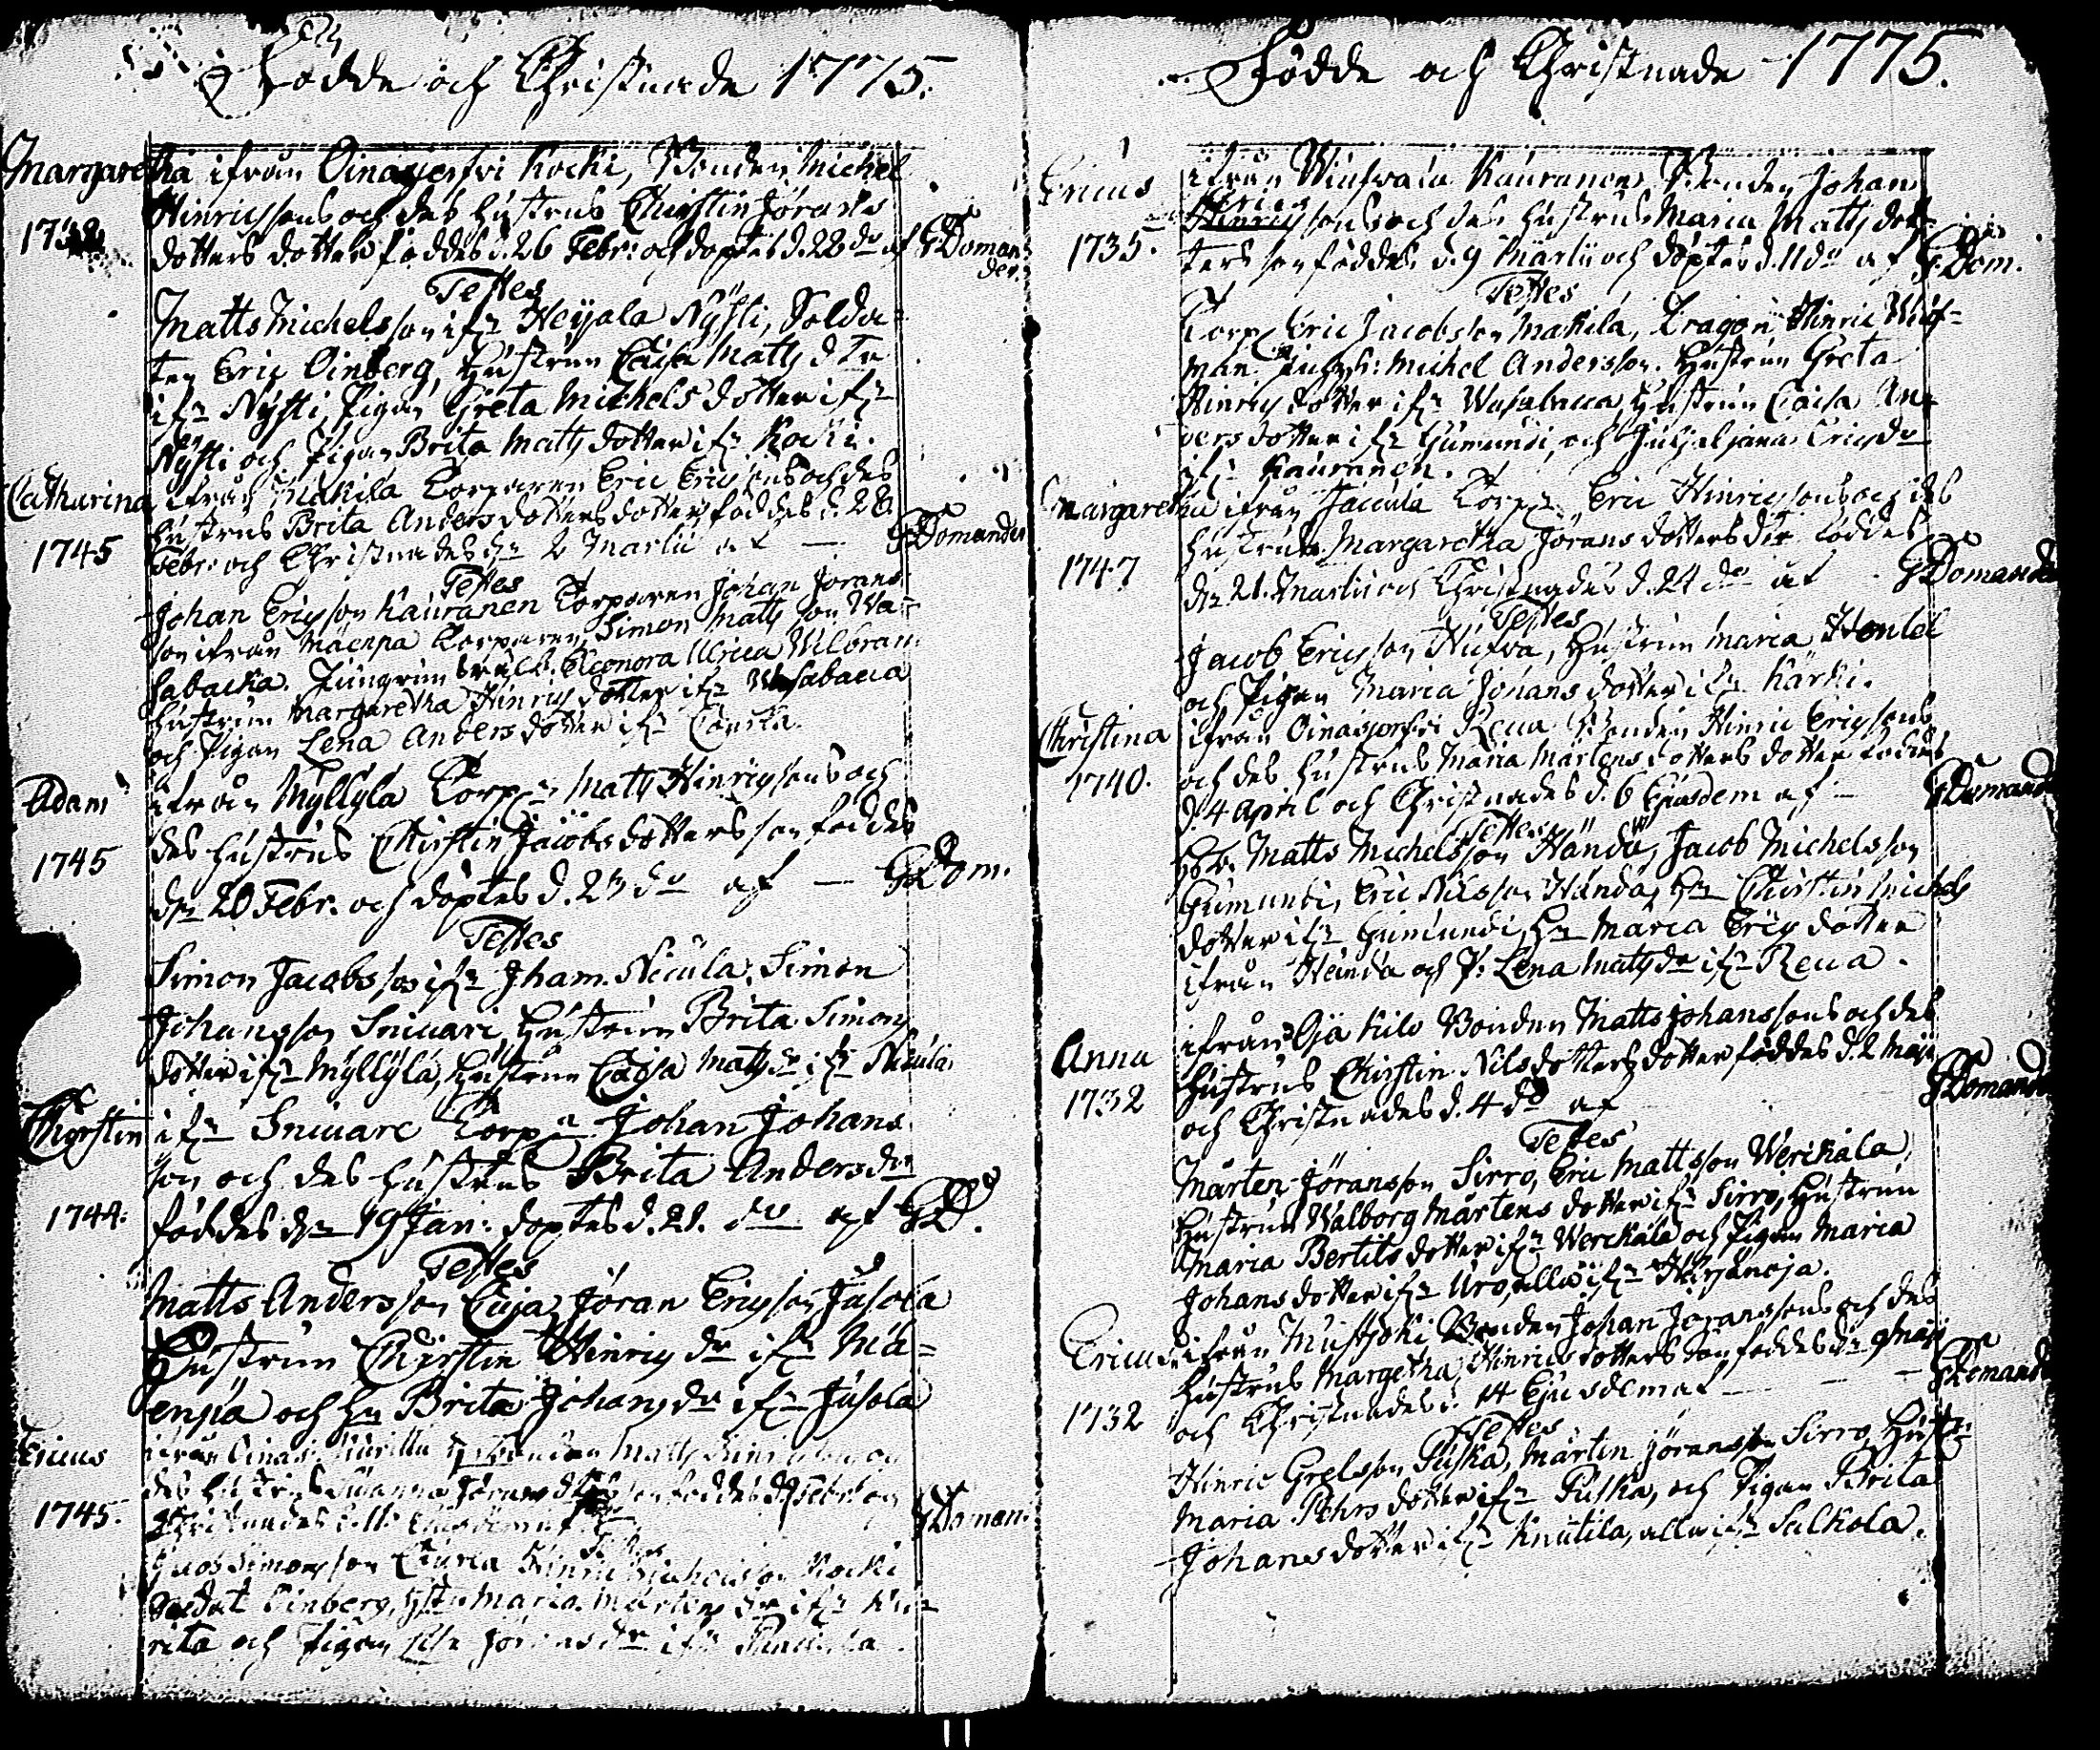 Födde och Christnade 1775.
Margaretha ifrån Oinasjerfvi Kocki, Bonden Michel
Hinricssons och des hustrus Chirstin Jörans
1732
dotters dotter föddes d. 26 Febr: och döptes d. 28 do af G Doman
der.
Testes
Matts Michelsson ifn Heijala Nysti, Solda
ten Eric Oinberg, Hustrun Caisa Matts dtr
ifn Nysti, Pigan Greta Michels dotter ifn
Nysti och Pigan Brita Matts dotter ifn Kocki.
Catharina ifrån Makila Torparen Eric Ericsons och des
hustrus Brita Anders dotters dotter föddes d. 28.
1745
Febr: och Christnades dn 2 Martii af — G Domander
Testes
Johan Ericsson Kauranen Torparen Johan Jörans
son ifrån Mäenpä Torparen Simon Mattsson Wa=
sabacka. Jungfrun Eleonora Ulrica Wilbran
hustrun Margaretha Hinrics dotter ifn Wasabacka
och Pigan Lena Anders dotter ifn
Adam
ifrån Myllylä Torpn Matts Hinricssons och
des hustrus Chirstin Jacobs dotters son föddes
1745
dn 20 Febr. och döptes d. 23 do af — G Dom.
Testes
Simon Jacobsson ifn Jham. Nicula, Simon
Johansson Snicari, Hustrun Brita Simons
dotter ifn Myllylä, Hustrun Cajsa Matts dr ifn Nicula
Chirstin ifn Snicare Torpn Johan Johans
son och des hustrus Brita Anders dr
1744.
föddes dn 19 Jan: döptes d. 21. do af G D.
Testes
Matts Andersson Cuja, Jöran Ericsson Jusola
Hustrun Chirstin Hinrics dr ifn Mä=
enpä och Hn Brita Johans dr ifn Jusola
Ericus
ifrån Oinas: Bonden Matts
des hustrus Susanna Jörans son föddes d. 9 Febr: och
1745.
Christnades d. 11 Ejusdem af G Doman:
Testes
Simonsson Hinric Michelsson Kocki
Soldat Oinberg, Maria Mårtens dr ifn Ku=
rita och Pigan Jörans dr ifn
Födde och Christnade 1775.
Ericus
ifrån Kauranen Bonden Johan
Erics
Hinricssons och des hustrus Maria Matts dot=
1735.
ters son föddes d. 9 Martii och döptes d. 11 do af G Dom.
Testes
Torpn Eric Jacobsson Makila, Dragon Hinric Wiif=
man. Michel Andersson. Hustrun Greta
Hinrics dotter ifn Wasabacca, Hustrun Caisa An=
ders dotter ifn Gumundi, och Erics dr
ifn Kauranen.
Margaretha ifrån Jaccula Torpn Eric Hinricssons och des
hustrus Margaretha Jörans dotters dtr föddes
1747
dn 21. Martii och Christnades d. 24 do af G Domande
Testes
Jacob Ericsson Hufva, Hustrun Maria
och Pigan Maria Johans dotter ifn Kärki.
Christina ifrån Oinasjerfvi Reua Bonden Hinric Ericssons
och des hustrus Maria Mårtens dotters dotter föddes
1740.
d. 4 April och Christnades d. 6 Ejusdem af — G Domande
Testes
Matts Michelsson Händä, Jacob Michelsson
Gumundi, Eric Nilsson Händä, Hn Chirstin Michels
dotter ifn Gumundi, Hn Maria Erics dotter
ifrån Händä och P: Lena Matts dr ifn Reua.
Anna
ifrån Oja Kilo Bonden Matts Johanssons och des
hustrus Chirstin Nils dotters dotter föddes d. 2 Maji
1732
och Christnades d. 4 do af G Domande
Testes
Mårten Jöransson Sirro, Eric Mattsson Werckala,
Hustrun Walborg Mårtens dotter ifn Sirro, Hustrun
Maria Bertils dotter ifn Werckala och Pigan Maria
Johans dotter ifn Uro, alla ifn
Ericus ifrån Mustjoki Bonden Johan Joranssons och des
hustrus Margetha Hinrics dotters son föddes dn 9 Maji
1732
och Christnades d. 14 Ejusdem af — G Domande
Testes
Hinric Grelsson Puska, Mårten Jöransson Sirro, Hustr:
Maria Pehrs dotter ifn Puska, och Pigan Brita
Johans dotter ifn Knutila, alla ifn Salkola.